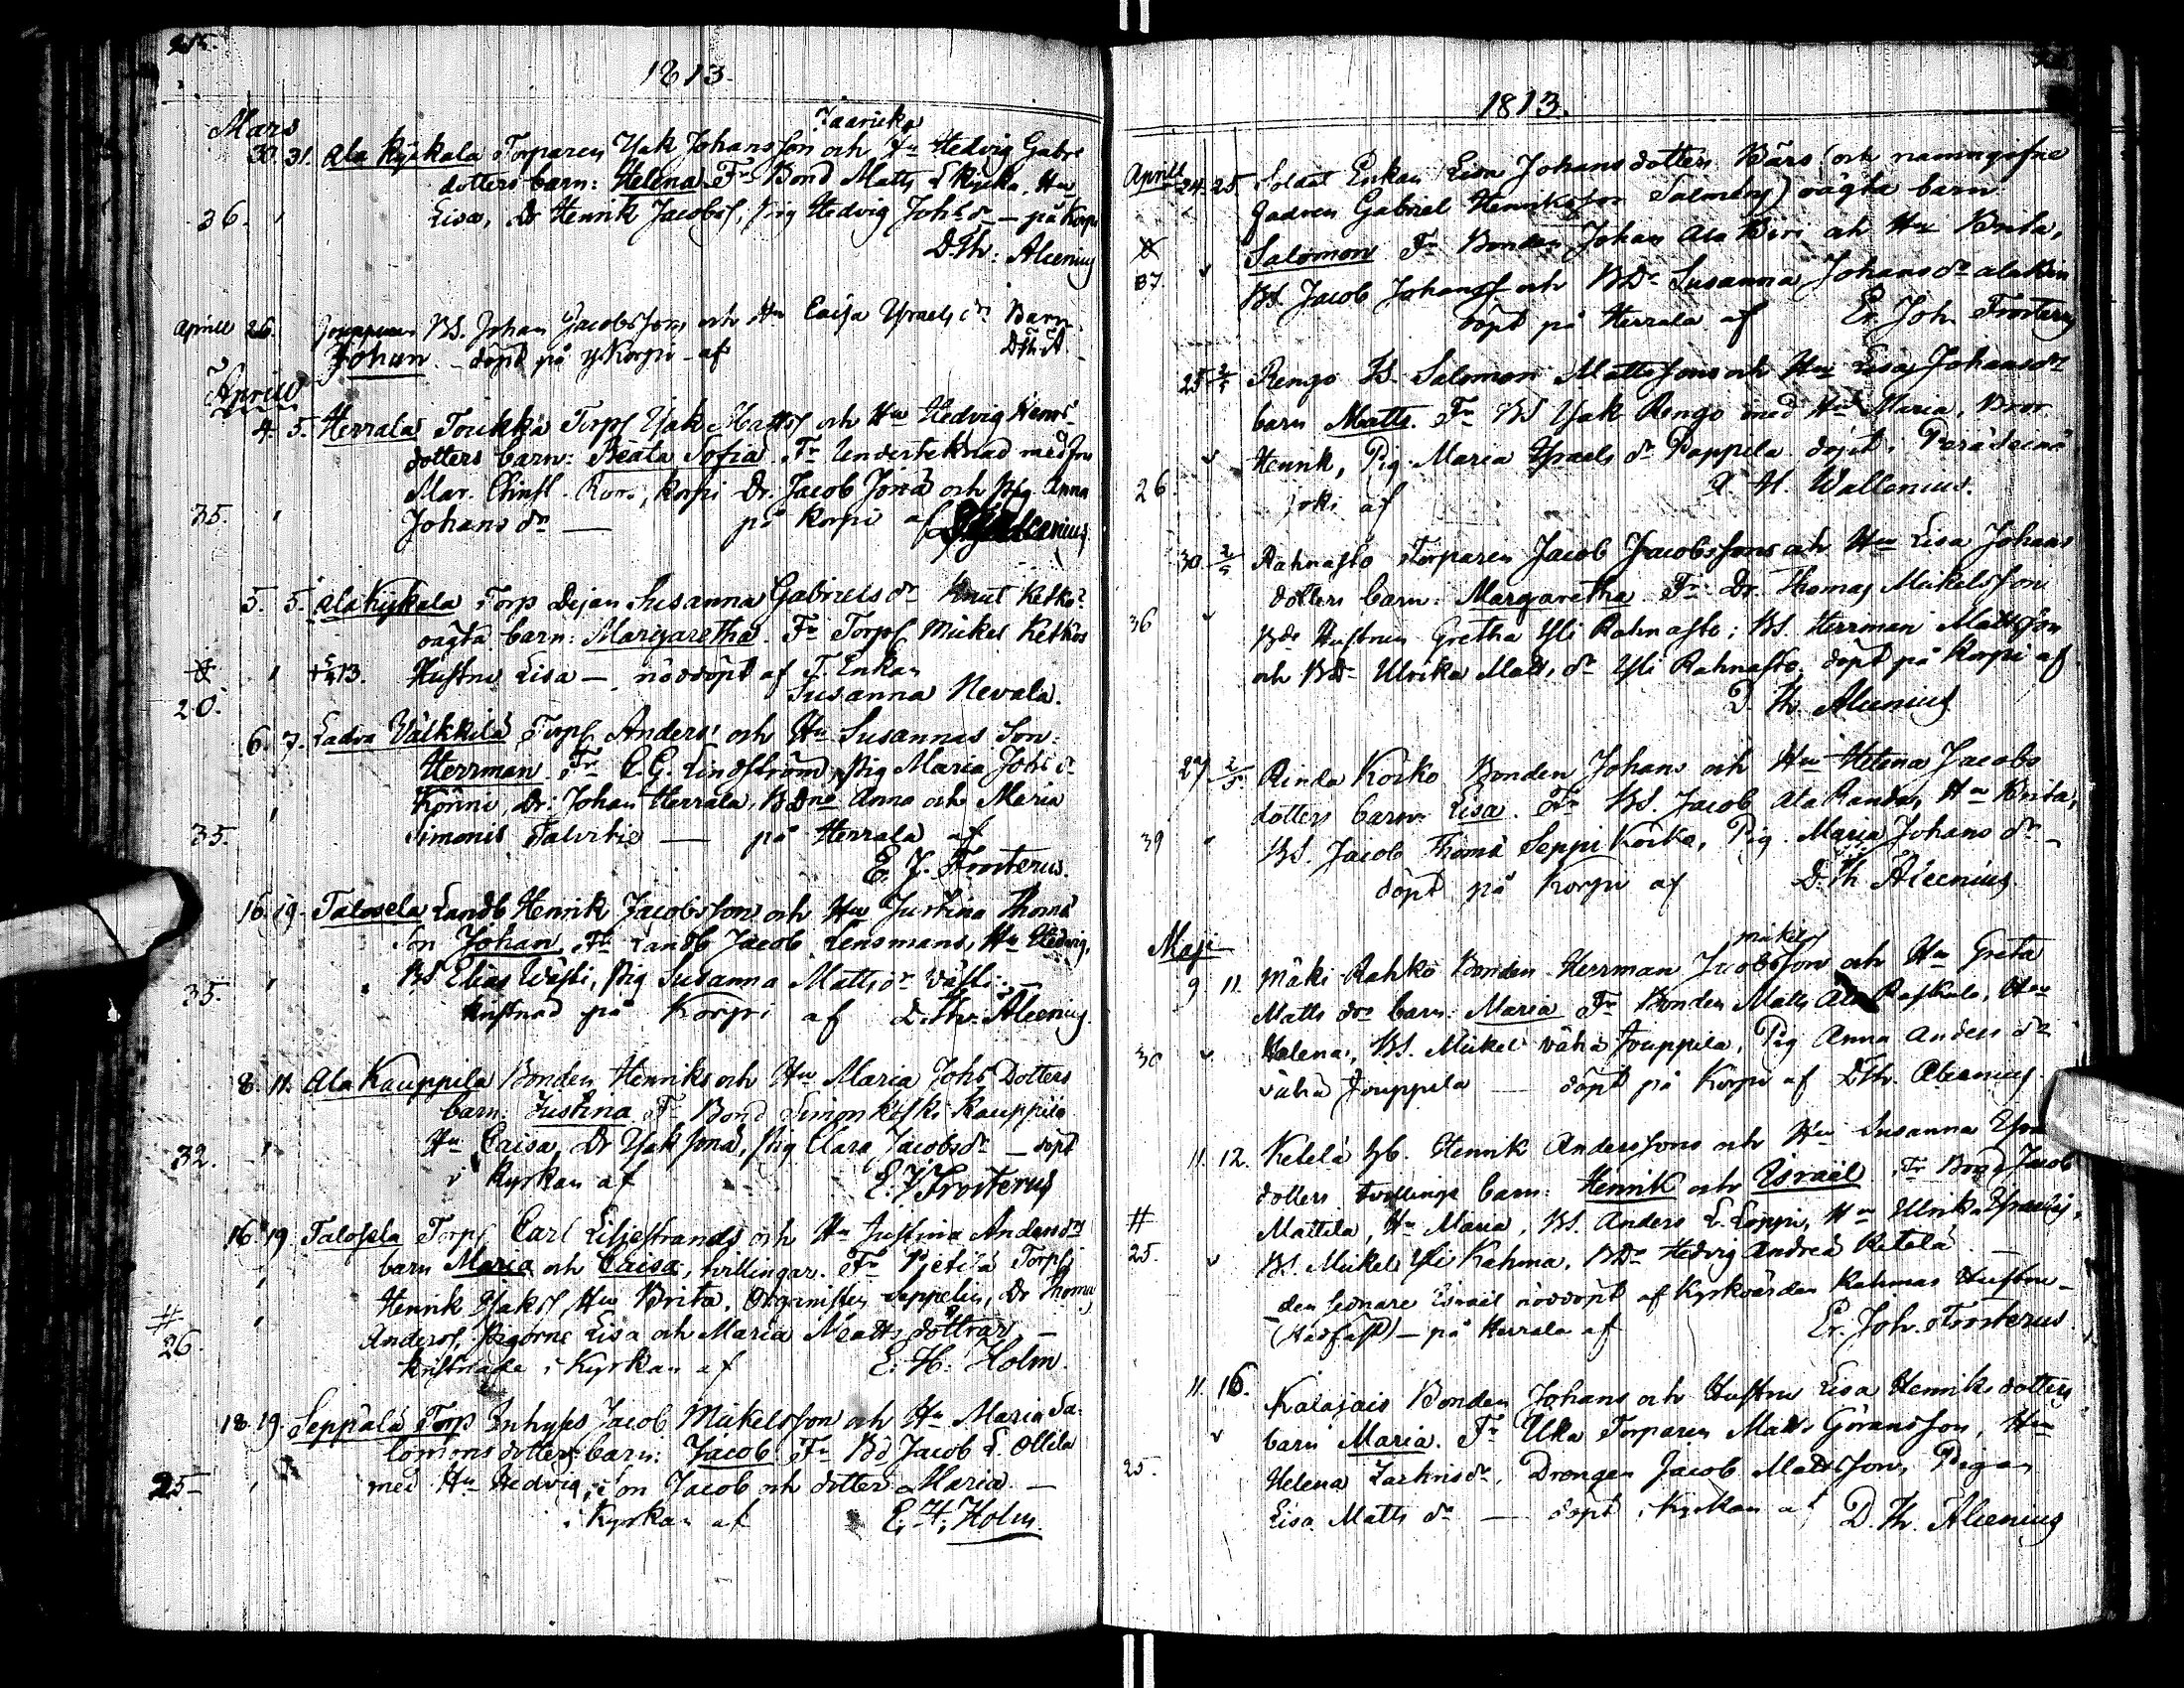 215.
1813.
Mars
Jaaricka
30. 31. Ala Kyckala Torparen Ysak Johansson och Hu Hedvig Gabrs
dotters barn: Helena. Fr Bond Matts L Kycka, Hu
36. Lisa, Dr Henrik Jacobss, pig Hedvig Johs dr — på Korpi
D.Th: Alcenius
Aprill 26. Jouppinen BS. Johan Jacobsson och Hu Caisa Ysraels dr Barn
Johan — döpt på y Korpi — af D.Th.A.
Aprill
4. 5. Herrala Toukka Torps Ysak Mattss och Hu Hedvig Henrs
dotters barn: Beata Sofia. Fr Undertecknad med fru
Mar. Christ. Korpi Dr. Jacob Jonä och pig Anna
35. Johans dr — på Korpi af
5. 5. Ala Kyckala Torp Dejan Susanna Gabriels dr Knut Ketko
oägta barn: Margaretha. Fr Torps Mickel Ketkos
13. Hustru Lisa — nöddöpt af T. Enkan
20. Susanna Nevala.
6. 7. Ladva Välkkilä Torps Anders och Hu Susannas Son:
Herrman. Fr C.G. Lindström, pig Maria Johs dr
Könni, Dr: Johan Herrala, BDne Anna och Maria
35. Simonis Talvitie — på Herrala af
E. J. Frosterus.
16. 19. Talosela Landb Henrik Jacobsson och Hu Justina Thomä
Son Johan. Fr Landb Jacob Lensmans, Hu Hedvig,
35. BS Elias Wästi, pig Susanna Matts dr Wästi —
kristnad på Korpi af D.Th. Alcenius.
8. 11. Ala Kauppila Bonden Henriks och Hu Maria Johs Dotters
barn: Justina Fr Bond Simon Kauppila
32. Hu Caisa, Dr Ysak Jonä, pig Clara Jacobs dr — döpt
i Kyrkan af E. J. Frosterus
16. 19. Talosela Torps Carl Liljestrands och Hu Justina Anders drs
barn Maria och Caisa, tvillingar. Fr Pjetilä Torps
Henrik Ysakss, Hu Brita, Organisten Seppelin, Dr Thomas
# Anderss, Pigorne Lisa och Maria Matts döttrar —
26. kristnade i Kyrkan af E. H. Holm.
18. 19. Seppälä Torp Inhyses Jacob Mickelsson och Hu Maria Sa-
lomons dotters barn: Jacob. Fr Bd Jacob L. Ollila
25 med Hu Hedvig, Son Jacob och dotter Maria —
i Kyrkan af E. H. Holm.
1813.
Aprill 24. 25. Soldat Enkan Lisa Johansdotters Bärs (och namngifne
fadren Gabriel Henriksson Salmeby) oägta barn
Salomon Fr Bonden Johan Ala Biri och Hu Brita,
37. BS. Jacob Johanss och BDr Susanna Johans dr Ala Biri
döpt på Herrala af Er. Joh. Frosterus
25 2/5 Rengo BS. Salomon Mattssons och Hu Lisa Johans dr
barn Matts. Fr BS Ysak Rengo med Hu Maria, Bror
Henrik, Pig. Maria Ysraels dr Pappila döpt i Peräseinä
26. joki af A. H. Wallenius.
30 2/5 Rahnasto Torparen Jacob Jacobssons och Hu Lisa Johans
dotters barn: Margaretha. Fr Dr. Thomas Mickelsson
36 Bds Hustrun Gretha Yli Rahnasto; BS. Herrman Mattsson
och BDr Ulrika Matts dr Yli Rahnasto, döpt på Korpi af
D. Th. Alcenius
27 2/5. Rinda Köykö Bonden Johans och Hu Helena Jacobs
dotters barn Lisa. Fr BS. Jacob Ala Randa, Hu Brita,
39 BS. Jacob Thomä Seppi Köykä, Pig. Maria Johans dr —
döpt på Korpi af D.Th. Alcenius.
Maji
Mickels
9. 11. Mäki Rahko Bonden Herrman Jacobsson och Hu Greta
Matts drs barn: Maria Fr Bonden Matts Ala Raskala, Hu
30 Helena, BS. Mickel Wähä Jouppila, Pig Anna Anders dr
Wähä Jouppila — döpt på Korpi af D.Th. Alcenius.
11. 12. Ketelä Hb. Henrik Anderssons och Hu Susanna
dotters tvillings barn: Henrik och Israël. Fr Bond Jacob
# Mattila, Hu Maria, BS. Anders L. Loppi, Hu Ulrika
25. BS. Mickel Yli Kahma, BDr Hedvig Andreä Ketelä —
den sednare Israël nöddöpt af Kyrkovärden Kahmas Hustru —
(stadfäst) — på Herrala af Er. Joh. Frosterus
11. 16. Kalajais Bonden Johans och Hustru Lisa Henriks dotters
barn Maria. Fr Uka Torparen Matts Göransson, Hu
25. Helena Zachris dr, Drengen Jacob Mattsson, Pigan
Lisa Matts dr — döpt i Kyrkan af D. Th. Alcenius